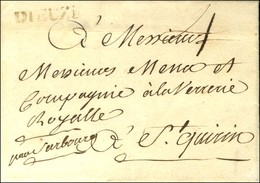 DIEUZE
à Messieurs
Messieurs Mena et
Compagnie à la Verrerie
Royalle
pour Sarbourg à St quirin